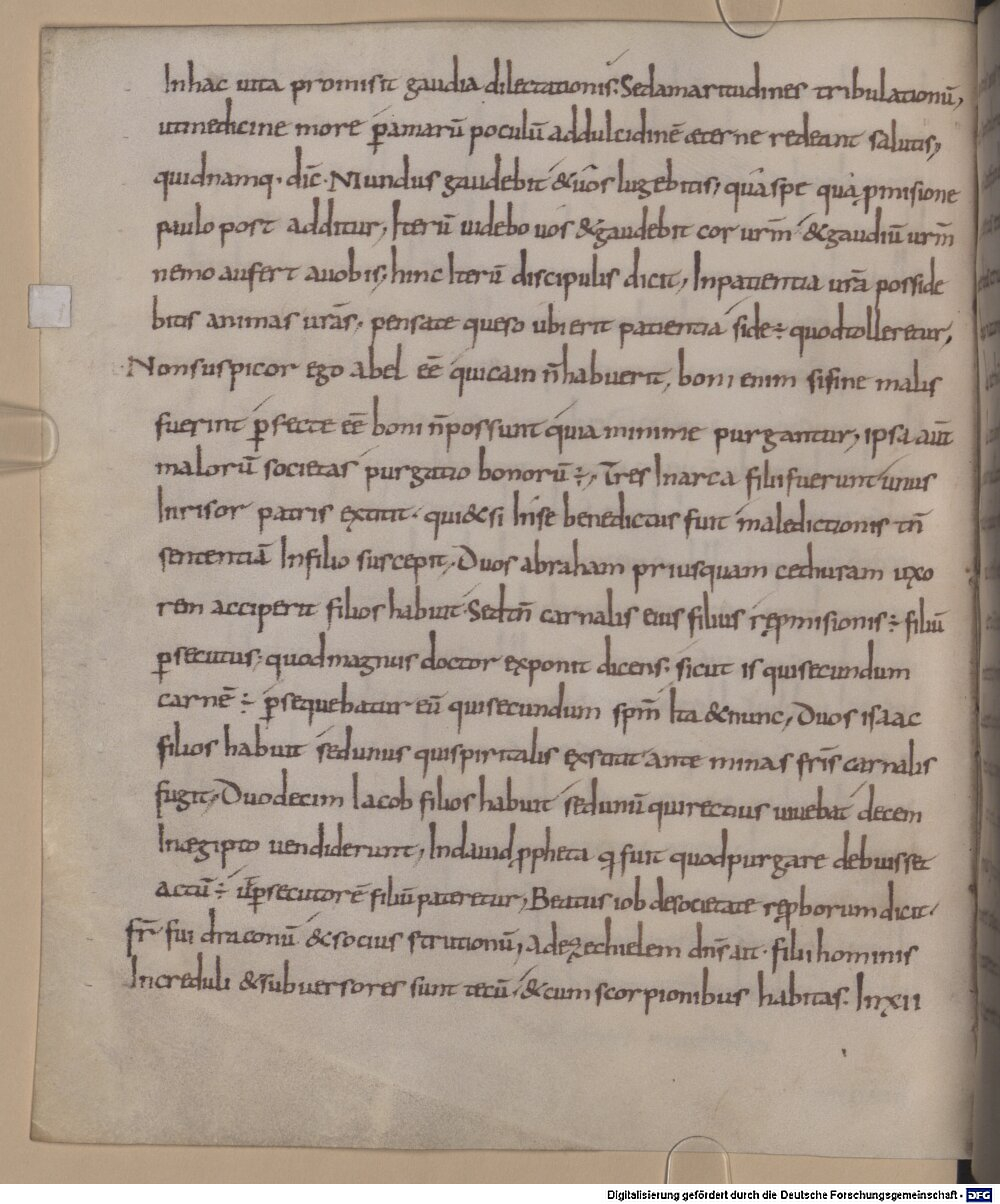 Inhac uita promisit gaudia dilectationis. Sedamaritudines tribulationū,
utmedicine more ꝑamarū poculū addulcidinē æterne redeant salutis,
quidnamq. dic̄. Mundus gaudebit &uos lugebitis, quasi spe qua ꝓmisione
paulo post additur, Iterū uidebo uos &gaudebit cor urm̄ &gaudiū urm̄
nemo aufert auobis, hinc Iterū discipulis dicit, Inpatientia urā posside
bitis animas urās, pensate queso ubierit patientia side÷ quodtolleretur,
Nonsuspicor ego abel eē quicain n̄habuerit, boni enim sisine malis
fuerint ꝑfecte eē boni n̄possunt quia minime purgantur, ipsa aut̄
malorū societas purgatio bonorū ÷, Tres Inarca filii fuerunt unus
Inrisor patris extitit. qui&si Inse benedictus fuit maledictionis tn̄
sententiā Infilio suscepit, Duos abraham priusquam cethuram uxo
rem acciperit filios habuit. Sedtn̄ carnalis eius filius reꝓmisionis ÷ filiū
ꝑsecutus, quodmagnus doctor exponit dicens. sicut is quisecundum
carnē ÷ ꝑsequebatur eū quisecundum spm̄ Ita &nunc, Duos isaac
filios habuit sedunus quispiritalis exstitit ante minas fr̄is carnalis
fugit, Duodecim Iacob filios habuit sedunū quirectius uiuebat decem
Inægipto uendiderunt, Indauid ꝓpheta q fuit quodpurgare debuisset
actū ÷ utꝑsecutorē filiū pateretur, Beatus iob desocietate reꝓborum dicit.
fr̄. fui draconū &socius strutionū, adezechielem dn̄s ait. filii hominis
Increduli &subuersores sunt tecū. &cum scorpionibus habitas. Inxii
Digitalisierung gefördert durch die Deutsche Forschungsgemeinschaft - DFG